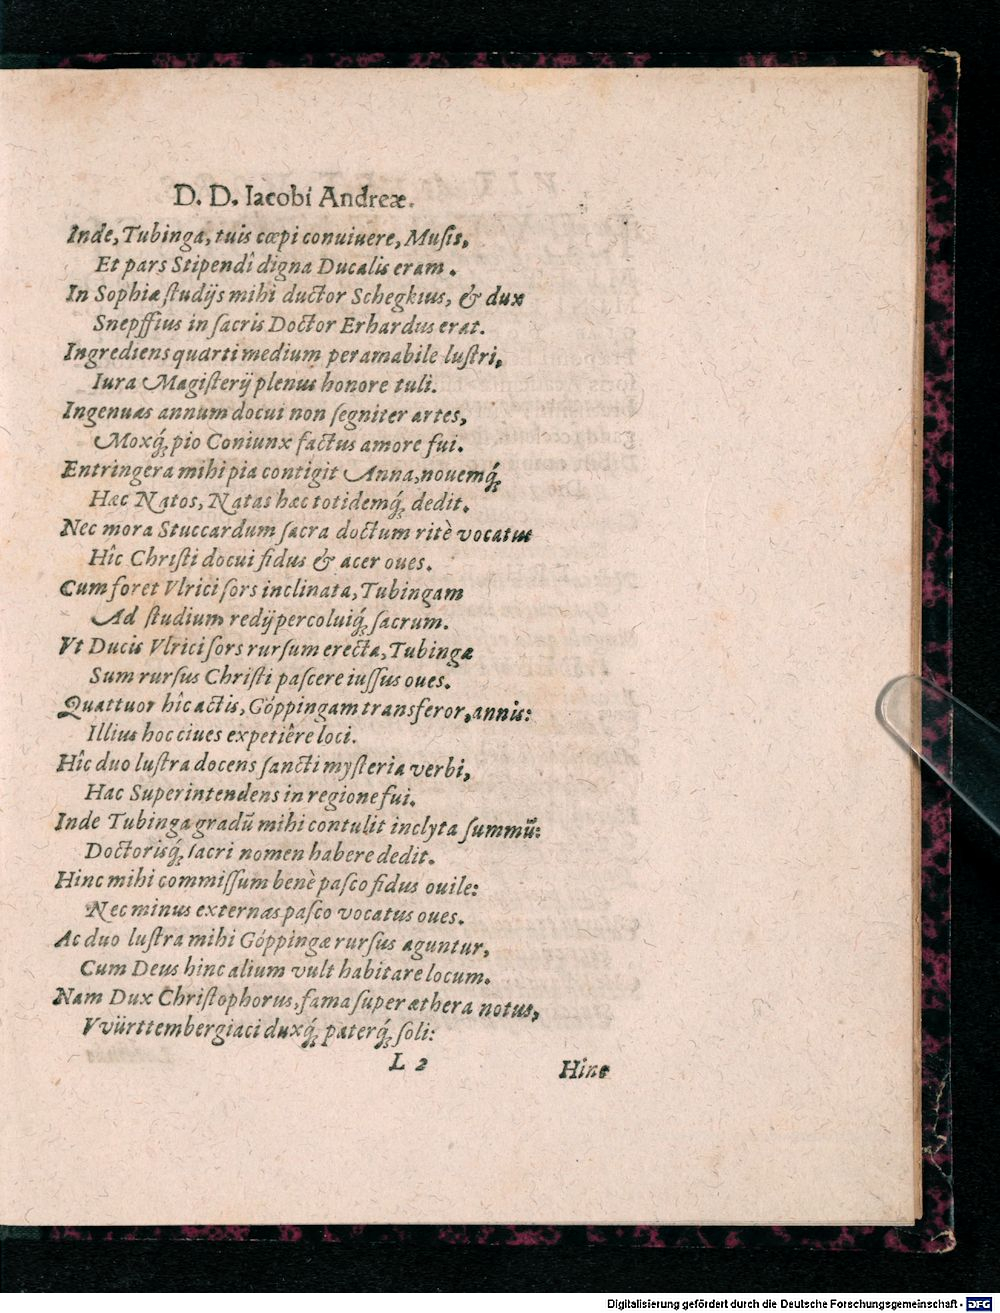 D. D. Iacobi Andreæ.
Inde, Tubinga, tuis cœpi conuiuere, Musis,
Et pars Stipendî digna Ducalis eram.
In Sophiæ studijs mihi ductor Schegkius, & dux
Snepffius in sacris Doctor Erhardus erat.
Ingrediens quarti medium per amabile lustri,
Iura Magisterij plenus honore tuli.
Ingenuas annum docui non segniter artes,
Moxq́; pio Coniunx factus amore fui.
Entringera mihi pia contigit Anna, nouemq́;
Hæc Natos, Natas hæc totidemq́; dedit.
Nec mora Stuccardum sacra doctum ritè vocatus
Hîc Christi docui fidus & acer oues.
Cum foret Vlrici sors inclinata, Tubingam
Ad studium redij percoluiq́; sacrum.
Vt Ducis Vlrici sors rursum erecta, Tubingæ
Sum rursus Christi pascere iussus oues.
Quattuor hîc actis, Göppingam transferor, annis:
Illius hoc ciues expetiêre loci.
Hîc duo lustra docens sancti mysteria verbi,
Hac Superintendens in regione fui.
Inde Tubinga gradũ mihi contulit inclyta summũ:
Doctorisq́; sacri nomen habere dedit.
Hinc mihi commissum benè pasco fidus ouile:
Nec minus externas pasco vocatus oues.
Ac duo lustra mihi Göppingæ rursus aguntur,
Cum Deus hinc alium vult habitare locum.
Nam Dux Christophorus, fama super æthera notus,
VVürttembergiaci duxq́; paterq́; soli:
L 2
Hinc
Digitalisierung gefördert durch die Deutsche Forschungsgemeinschaft - DFG